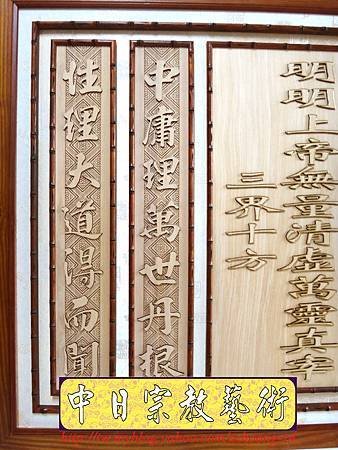 明明上帝無量清虛萬靈真宰
三界十方
中庸理萬世丹根
性理大道得而聞
中日宗教藝術